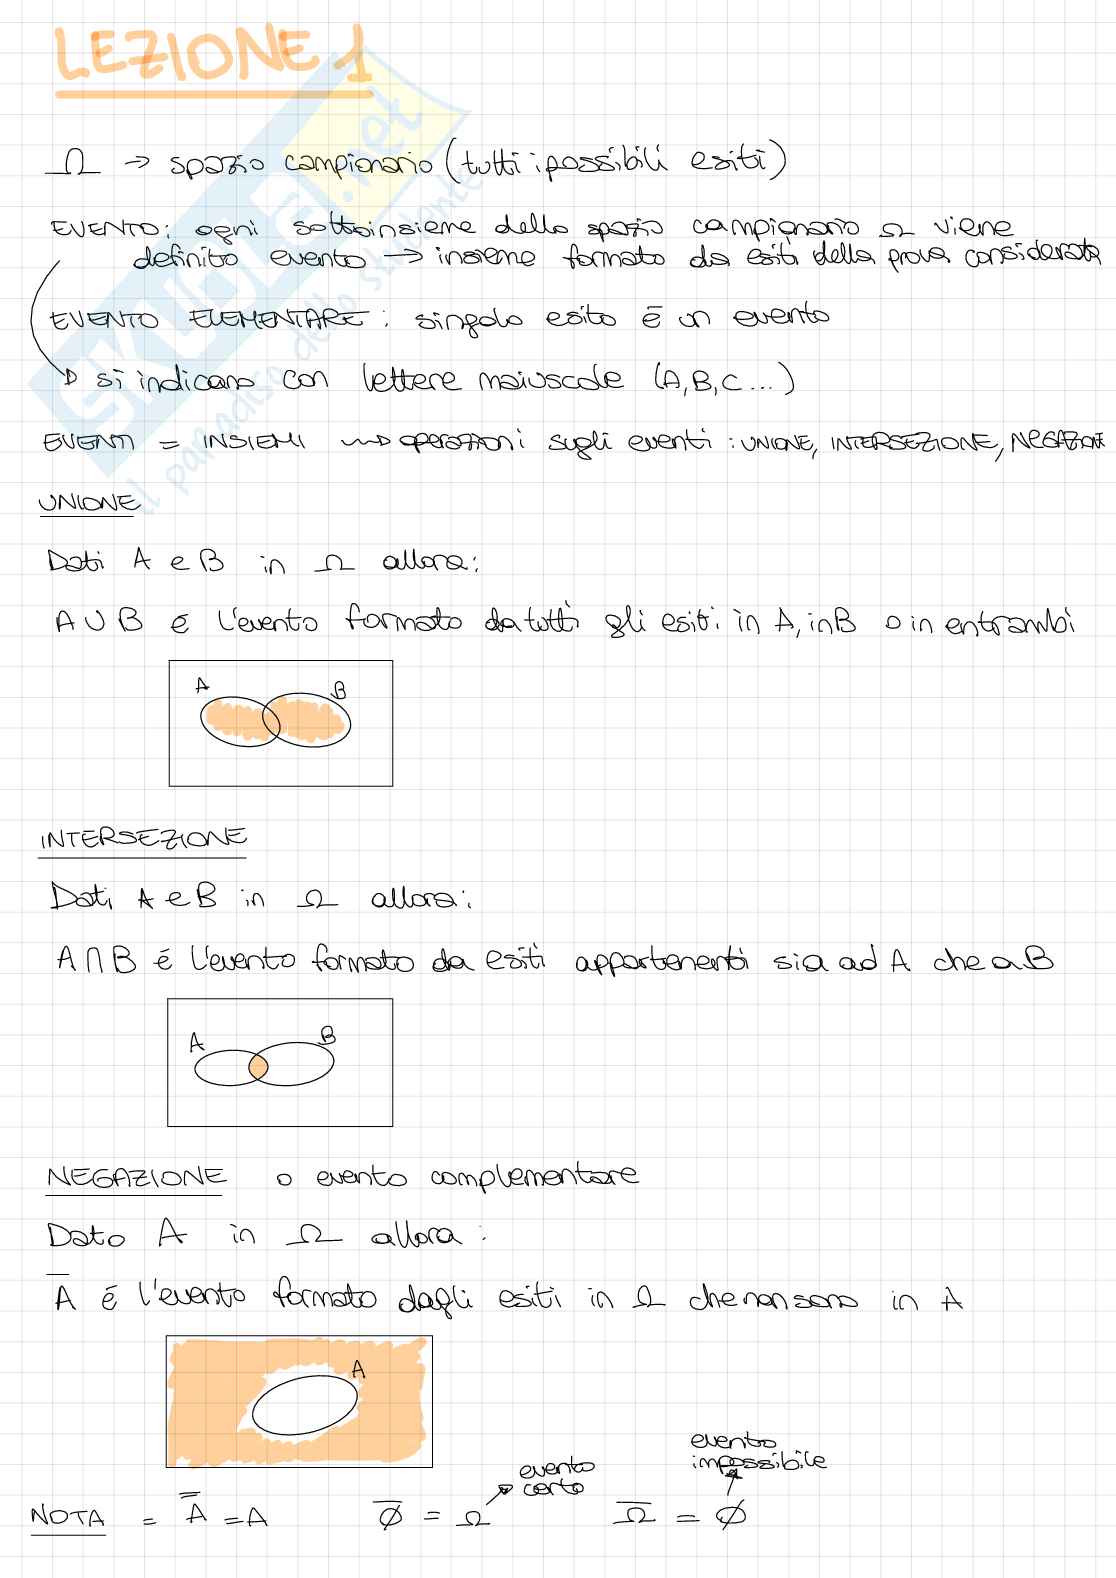 LEZIONE 1
Ω → spazio campionario (tutti i possibili esiti)
EVENTO: ogni sottoinsieme dello spazio campionario Ω viene
definito evento → insieme formato da esiti della prova considerata
EVENTO ELEMENTARE: singolo esito é un evento
si indicano con lettere maiuscole (A, B, C ...)
EVENTI = INSIEMI → operazioni sugli eventi: UNIONE, INTERSEZIONE, NEGAZIONE
UNIONE
Dati A e B in Ω allora:
A ∪ B é l'evento formato da tutti gli esiti in A, in B o in entrambi
A B
INTERSEZIONE
Dati A e B in Ω allora:
A ∩ B é l'evento formato da esiti appartenenti sia ad A che a B
A B
NEGAZIONE o evento complementare
Dato A in Ω allora:
A̅ é l'evento formato dagli esiti in Ω che non sono in A
A
evento certo
evento impossibile
NOTA = A̿ = A ∅̅ = Ω Ω̅ = ∅
SKUOLA.net
il paradiso dello studente